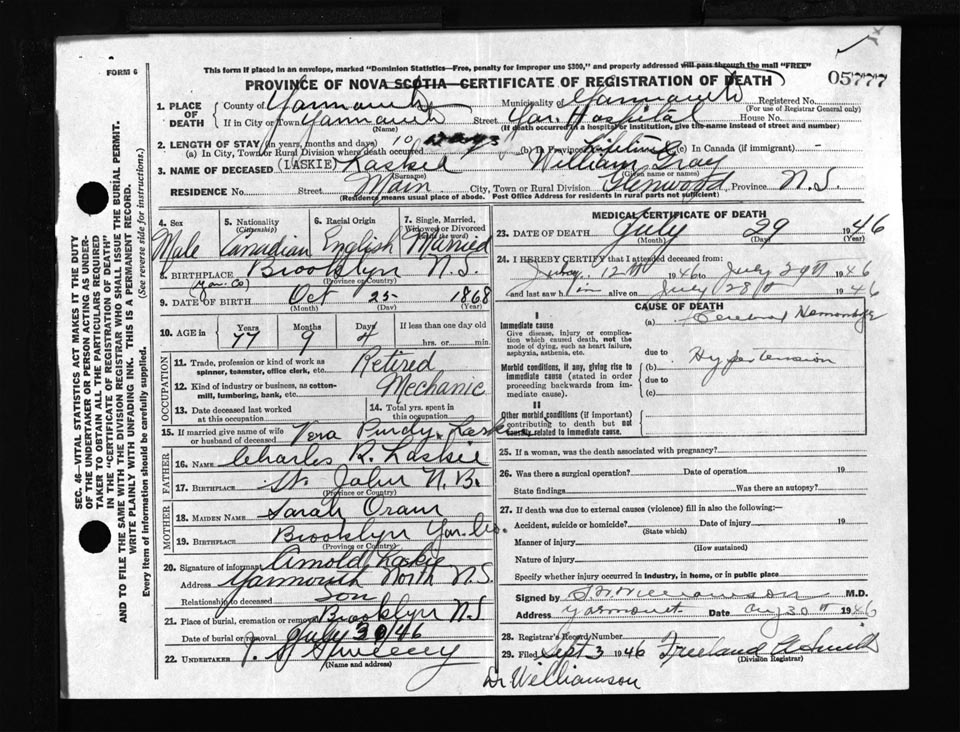 FORM 6
This form if placed in an envelope, marked "Dominion Statistics—Free, penalty for improper use $300," and properly addressed will pass through the mail "FREE"
PROVINCE OF NOVA SCOTIA—CERTIFICATE OF REGISTRATION OF DEATH
05777
1. PLACE OF DEATH
County of Yarmouth Municipality of Yarmouth Registered No.
(For use of Registrar General only)
If in City or Town Yarmouth Street Yar. Hospital House No.
(Name) (If death occurred in a hospital or institution, give the name instead of street and number)
2. LENGTH OF STAY (in years, months and days)
(a) In City, Town or Rural Division where death occurred 10 days (b) In Province Lifetime (c) In Canada (if immigrant)
3. NAME OF DECEASED (LASKIE) Laskie William Gray
(Surname) (Given name or names)
RESIDENCE No. Street Main City, Town or Rural Division Glenwood Province N.S.
(Residence means usual place of abode. Post Office Address for Residents in rural parts not sufficient)
4. Sex Male
5. Nationality (Citizenship) Canadian
6. Racial Origin English
7. Single, Married, Widowed or Divorced (write the word) Married
8. BIRTHPLACE Brooklyn N.S.
(Yar. Co) (Province or Country)
9. DATE OF BIRTH Oct 25 1868
(Month) (Day) (Year)
10. AGE in Years Months Days If less than one day old
77 9 4 hrs. or min.
OCCUPATION
11. Trade, profession or kind of work as spinner, teamster, office clerk, etc. Retired
12. Kind of industry or business, as cotton-mill, lumbering, bank, etc. Mechanic
13. Date deceased last worked at this occupation
14. Total yrs. spent in this occupation
15. If married give name of wife or husband of deceased Vera Purdy Laskie
FATHER
16. NAME Charles R. Laskie
17. BIRTHPLACE St. John N.B.
(Province or Country)
MOTHER
18. MAIDEN NAME Sarah Oram
19. BIRTHPLACE Brooklyn Yar. Co.
(Province or Country)
20. Signature of informant Arnold Laskie
Address Yarmouth North N.S.
Relationship to deceased Son
21. Place of burial, cremation or removal Brooklyn N.S.
Date of burial or removal July 30/46
22. UNDERTAKER Sweeney
(Name and address)
MEDICAL CERTIFICATE OF DEATH
23. DATE OF DEATH July 29 1946
(Month) (Day) (Year)
24. I HEREBY CERTIFY that I attended deceased from:
July 12th 1946 to July 29th 1946
and last saw him alive on July 28th 1946
CAUSE OF DEATH
I
Immediate cause
Give disease, injury or complication which caused death, not the mode of dying, such as heart failure, asphyxia, asthenia, etc.
(a) Cerebral Hemorrhage
due to
Morbid conditions, if any, giving rise to immediate cause (stated in order proceeding backwards from immediate cause).
(b) Hypertension
due to
(c)
II
Other morbid conditions (if important) contributing to death but not causally related to immediate cause.
25. If a woman, was the death associated with pregnancy?
26. Was there a surgical operation? Date of operation 19
State findings Was there an autopsy?
27. If death was due to external causes (violence) fill in also the following:
Accident, suicide or homicide? Date of injury 19
(State which)
Manner of injury
(How sustained)
Nature of injury
Specify whether injury occurred in industry, in home, or in public place
Signed by Williamson M.D.
Address Yarmouth Date Aug 30th 1946
28. Registrar's Record Number
29. Filed Sept 3 1946 Freeland A Smith
(Division Registrar)
Dr Williamson
SEC. 46—VITAL STATISTICS ACT MAKES IT THE DUTY
OF THE UNDERTAKER OR PERSON ACTING AS UNDER-
TAKER TO OBTAIN ALL THE PARTICULARS REQUIRED
IN THE "CERTIFICATE OF REGISTRATION OF DEATH"
AND TO FILE THE SAME WITH THE DIVISION REGISTRAR WHO SHALL ISSUE THE BURIAL PERMIT.
WRITE PLAINLY WITH UNFADING INK. THIS IS A PERMANENT RECORD.
Every item of information should be carefully supplied. (See reverse side for instructions.)